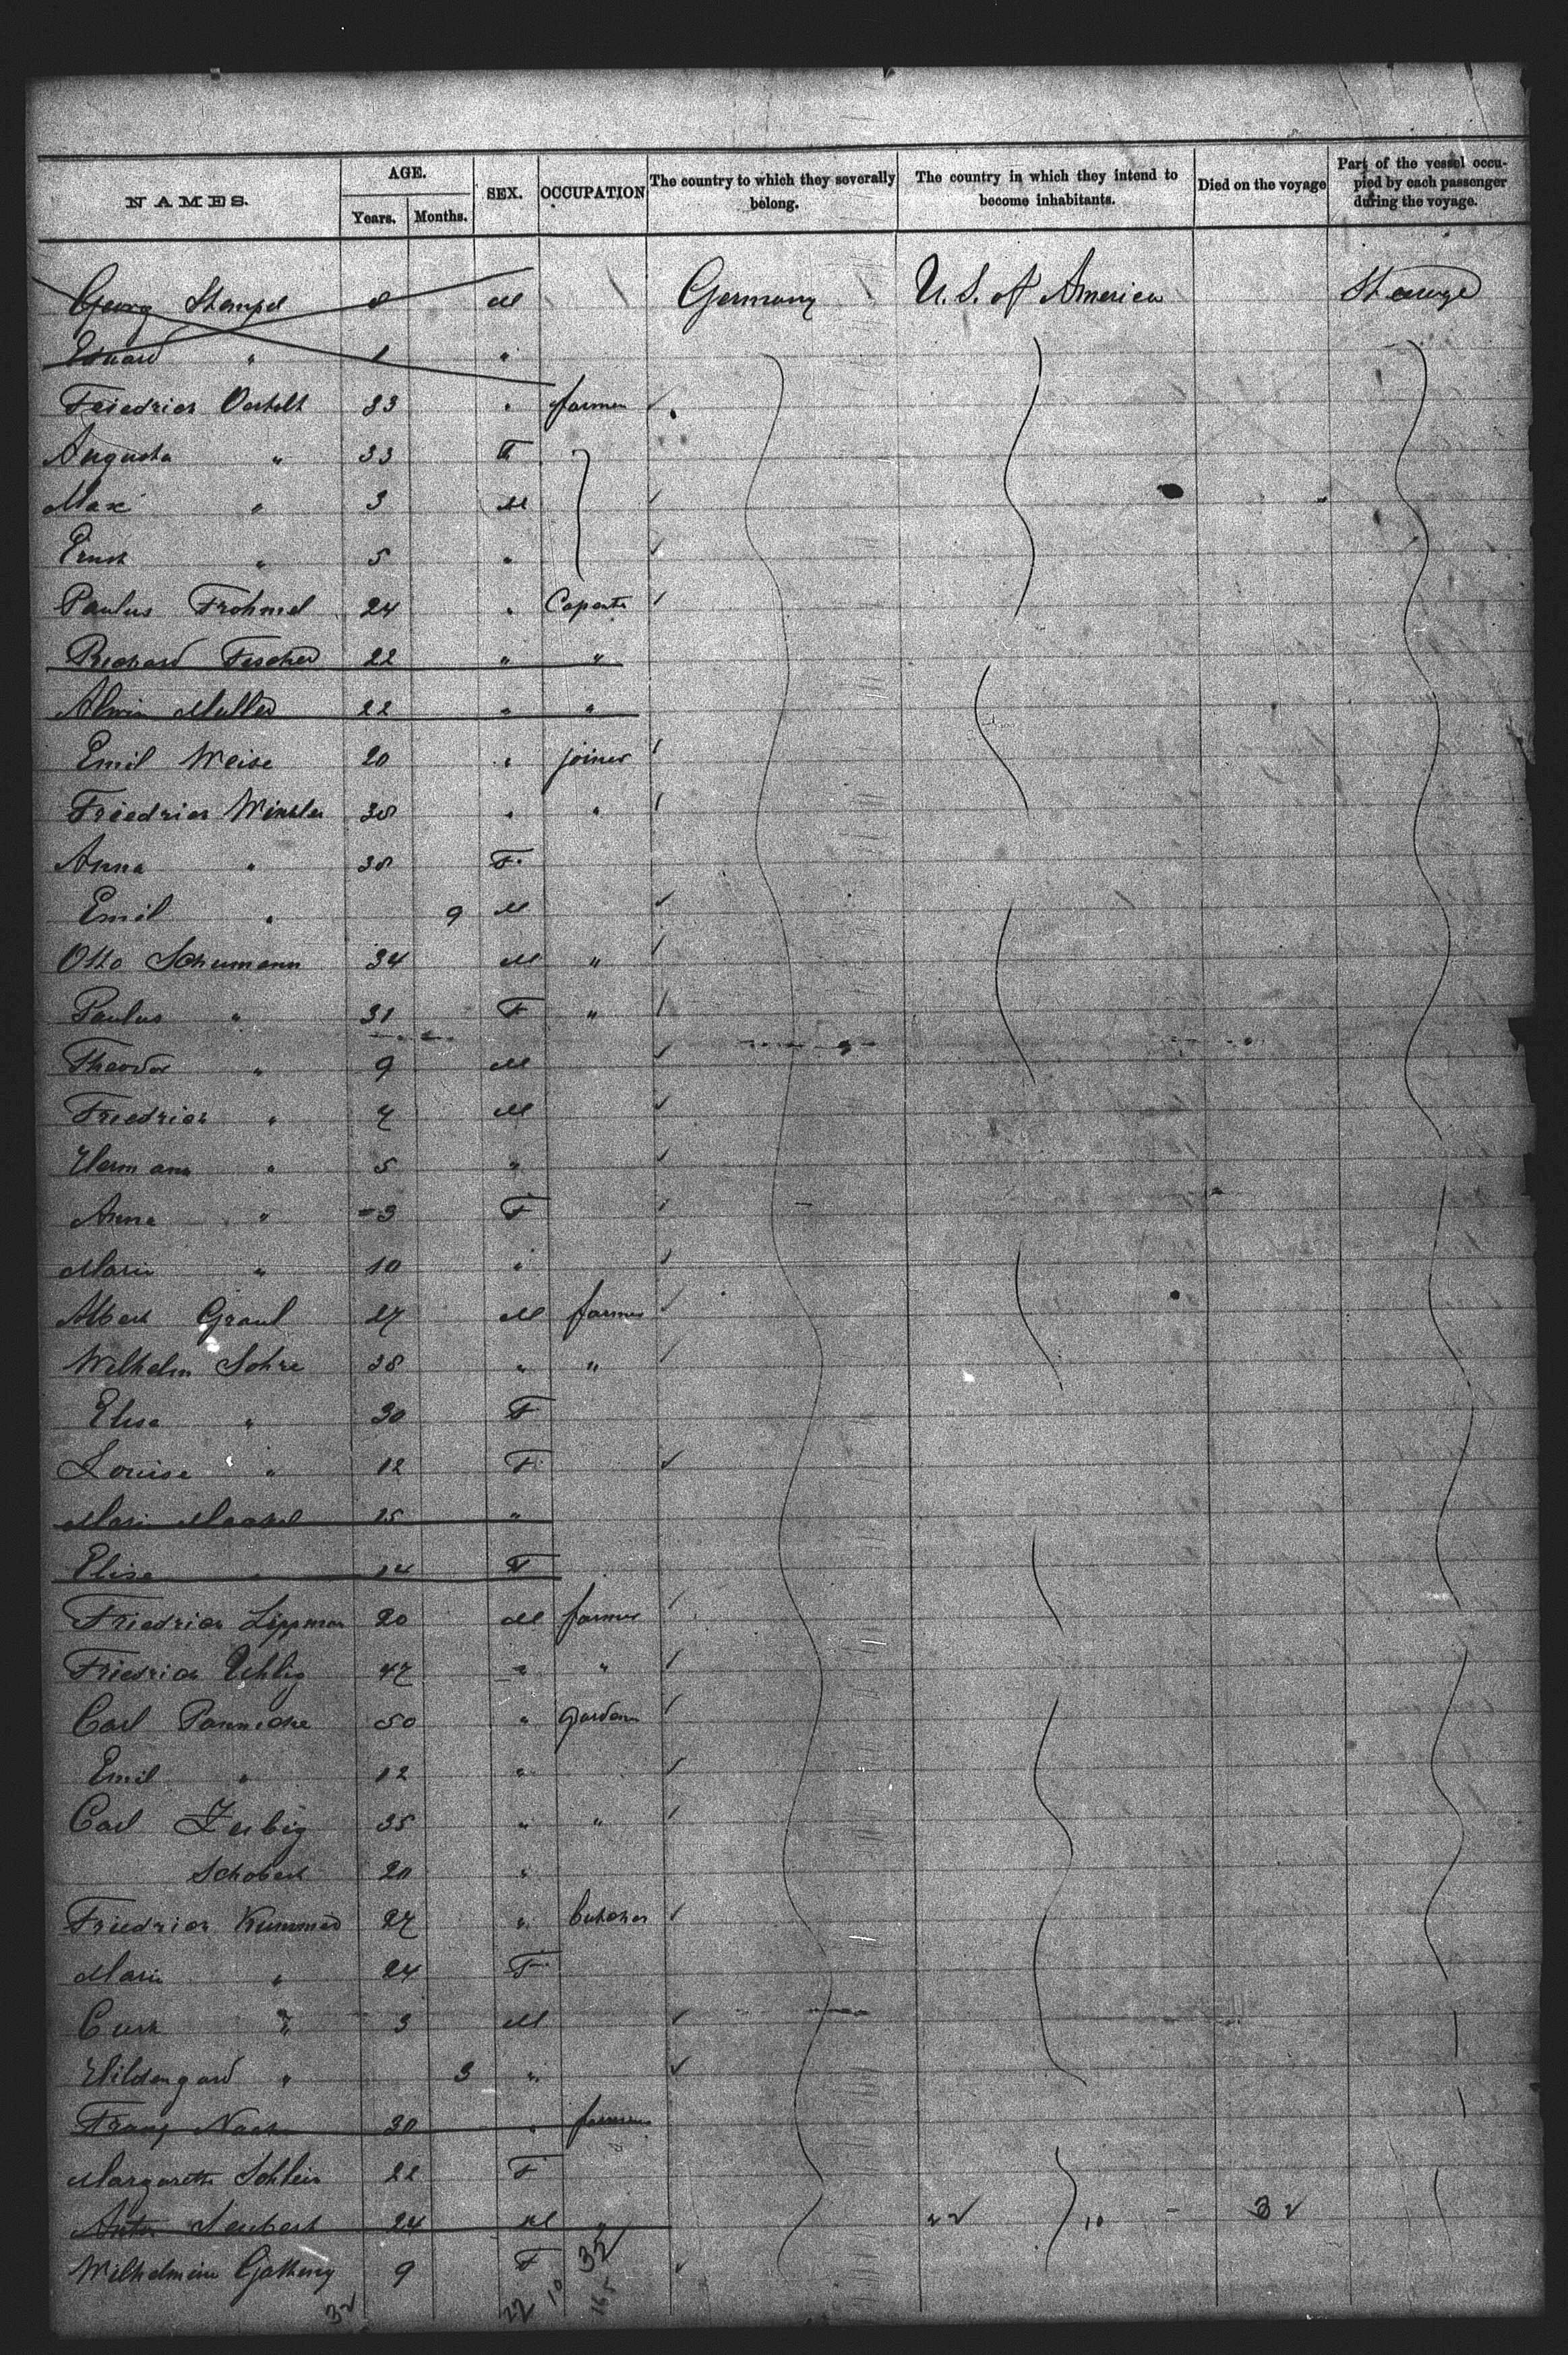 NAMES. AGE. Years. Months. SEX. OCCUPATION The country to which they severally belong. The country in which they intend to become inhabitants. Died on the voyage Part of the vessel occupied by each passenger during the voyage.
Georg Stempel M Germany U. S. of America Steerage
Eduard " 1 "
Friedrich 33 " farmer
Augusta " 33 F
Max " 3 M
Ernst " 5 "
Paulus Frohmel 24 "
Richard Fischer 22 " "
Alwin Muller 22 " "
Emil Weise 20 " joiner
Friedrich Winkler 38 " "
Anna " 38 F
Emil " 9 M
Otto Schumann 34 M "
Paulus " 31 F "
Theodor " 9 M
Friedrich " 7 M
Hermann " 5 "
Anna " 3 F
Marie " 10 "
Albert Graul 27 M farmer
Wilhelm Sohre 38 " "
Elise " 30 F
Louise " 12 F
Marie 15 "
Elise " 14 F
Friedrich Lippman 20 M farmer
Friedrich Uhlig 47 " "
Carl Pannicke 50 "
Emil " 12 "
Carl Zerbig 35 " "
Schobert 20 "
Friedrich Kummer 27 " butcher
Marie " 24 F
Curt " 3 M
Hildengard " 3 "
Franz 30 " farmer
Margareth Schlein 22 F
Anton Seubert 24 M " 10 32
Wilhelmine 9 F 32
32 22 10 165